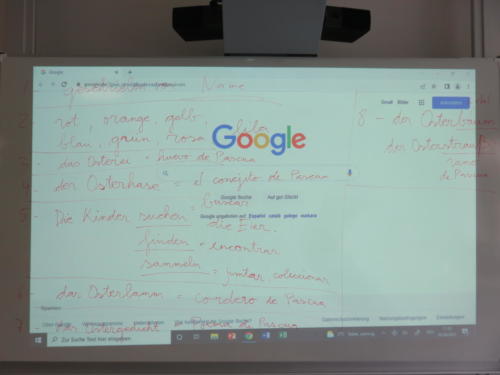 Google
Gmail Bilder
Name
8 - der Osterbaum
2 rot, orange, gelb,
blau, grün, rosa, lila
der Osterstrauß
Google
3 - das Osterei = huevo de Pascua
de Pascua
4 - der Osterhase = el conejito de Pascua
Google Suche Auf gut Glück!
= buscar
5 - Die Kinder suchen die Eier.
Google angeboten auf: Español català galego euskara
finden = encontrar
sammeln = juntar, coleccionar
6 - das Osterlamm = cordero de Pascua
Spanien
7 - das Ostergedicht = Poema de Pascua
Datenschutzerklärung Nutzungsbedingungen Einstellungen
Zur Suche Text hier eingeben